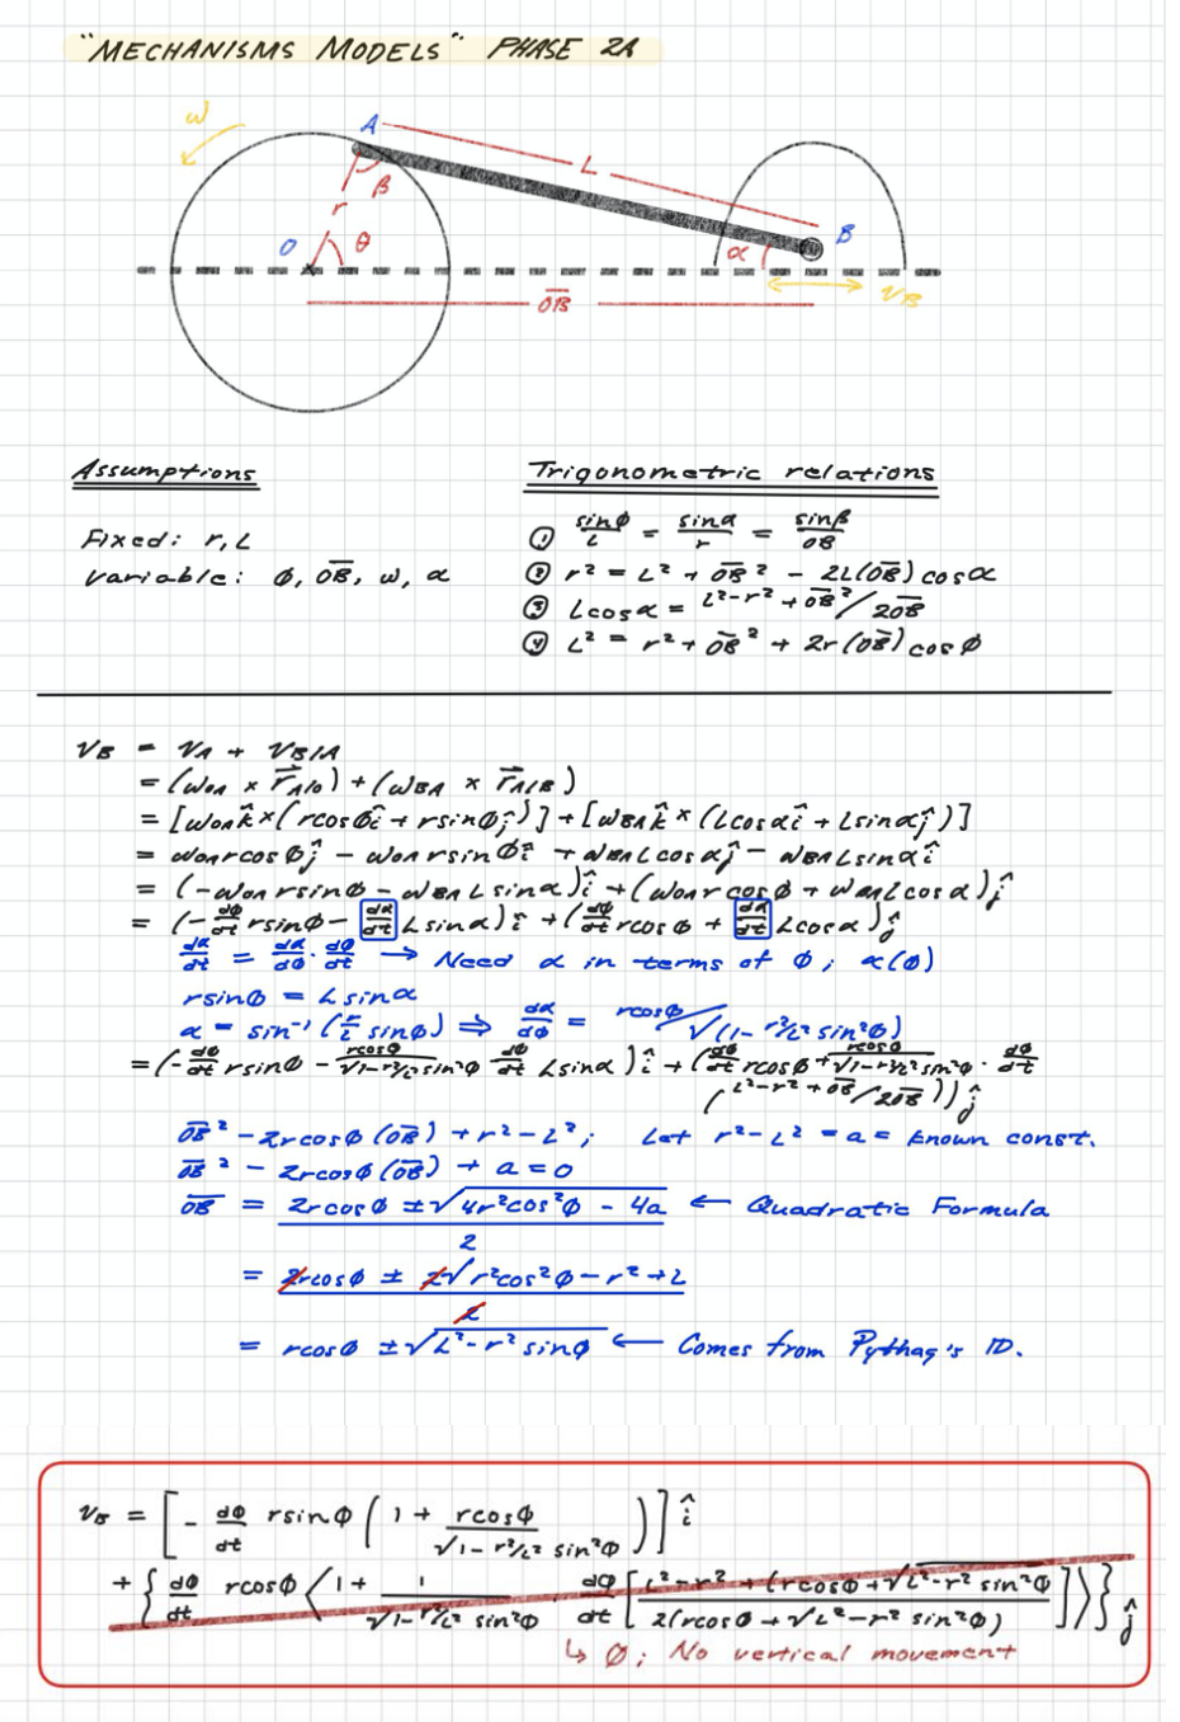 "MECHANISMS MODELS" PHASE 2A
ω
A
L
β
r
O
θ
α
B
OB̅
v_B
Assumptions
Fixed: r, L
Variable: φ, O̅B̅, ω, α
Trigonometric relations
① sinφ/L = sinα/r = sinβ/OB
② r² = L² + O̅B̅² - 2L(O̅B̅)cosα
③ Lcosα = L²-r²+O̅B̅²/2O̅B̅
④ L² = r² + O̅B̅² + 2r(O̅B̅)cosφ
v_B = v_A + v_B/A
= (ω_OA × r⃗_A/O) + (ω_BA × r⃗_A/B)
= [ω_OA k̂ × (rcosφî + rsinφĵ)] + [ω_BA k̂ × (Lcosαî + Lsinαĵ)]
= ω_OA rcosφĵ - ω_OA rsinφî + ω_BA Lcosαĵ - ω_BA Lsinαî
= (-ω_OA rsinφ - ω_BA Lsinα)î + (ω_OA rcosφ + ω_BA Lcosα)ĵ
= (-dφ/dt rsinφ - dα/dt Lsinα)î + (dφ/dt rcosφ + dα/dt Lcosα)ĵ
dα/dt = dα/dφ · dφ/dt → Need α in terms of φ; α(φ)
rsinφ = Lsinα
α = sin⁻¹(r/L sinφ) ⇒ dα/dφ = rcosφ/√(1-r²/L² sin²φ)
= (-dφ/dt rsinφ - rcosφ/√1-r²/L² sin²φ dφ/dt Lsinα)î + (dφ/dt rcosφ + rcosφ/√1-r²/L² sin²φ · dφ/dt
(L²-r²+O̅B̅/2O̅B̅))ĵ
O̅B̅² - 2rcosφ(O̅B̅) + r² - L²; Let r² - L² = a = known const.
O̅B̅² - 2rcosφ(O̅B̅) + a = 0
O̅B̅ = 2rcosφ ± √4r²cos²φ - 4a / 2 ← Quadratic Formula
= 2rcosφ ± 2√r²cos²φ - r² + L / 2
= rcosφ ± √L² - r² sinφ ← Comes from Pythag's ID.
v_B = [-dφ/dt rsinφ (1 + rcosφ/√1-r²/L² sin²φ)] î
+ {dφ/dt rcosφ ⟨1 + 1/√1-r²/L² sin²φ dφ/dt [L²-r² + (rcosφ + √L²-r² sin²φ / 2(rcosφ + √L²-r² sin²φ)]⟩} ĵ
↳ φ; No vertical movement